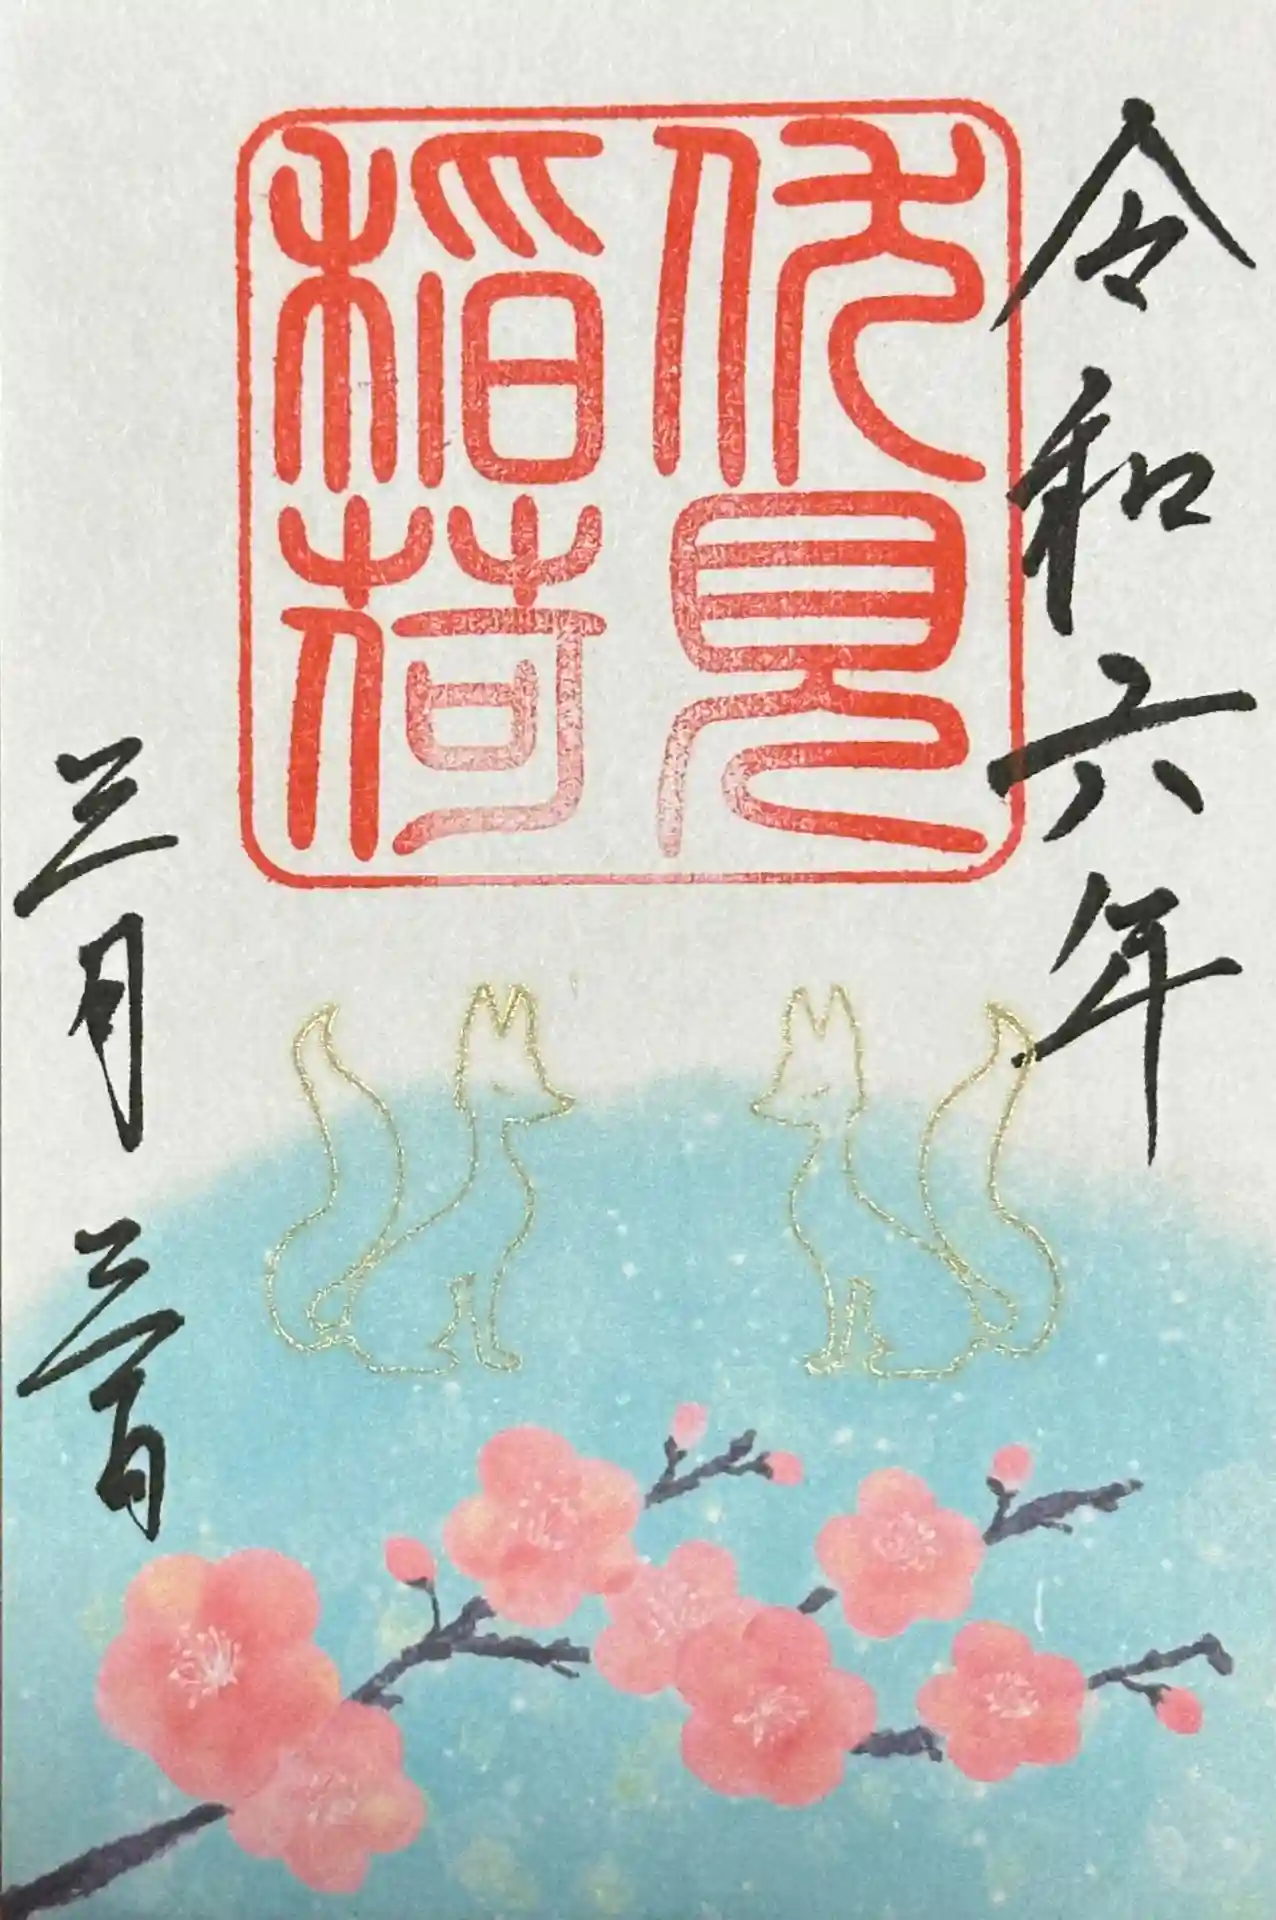 令和六年
伏見
稲荷
三月三日